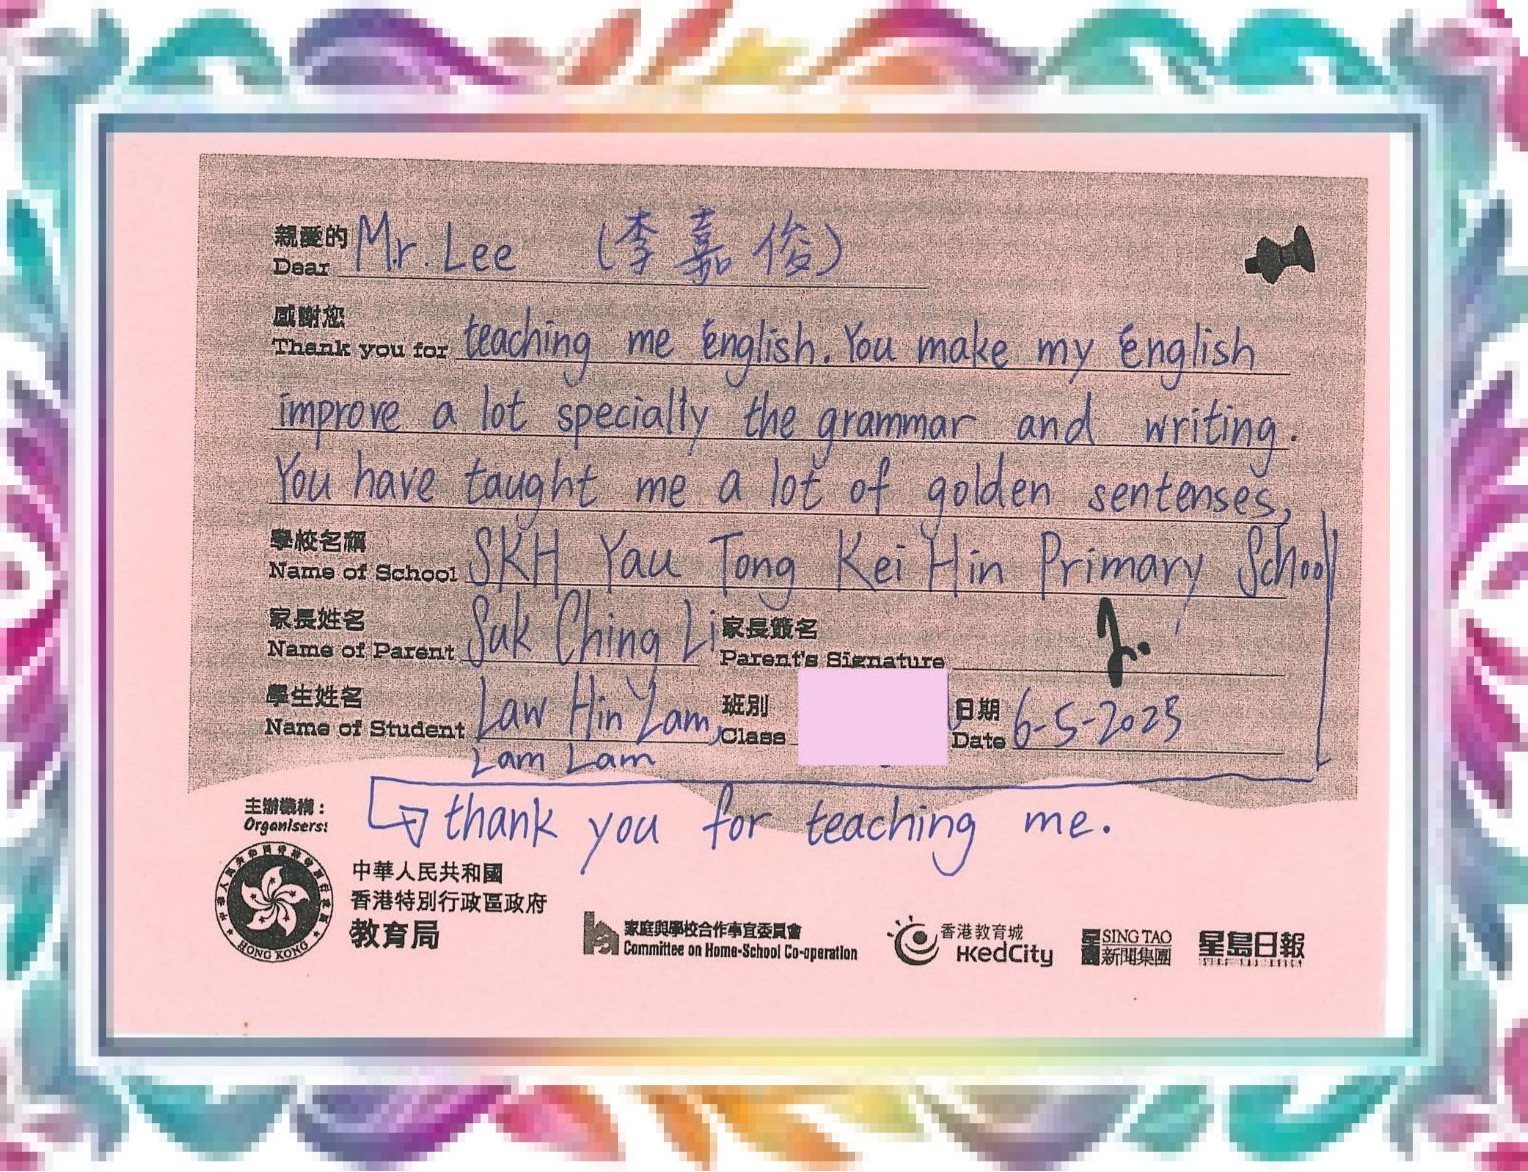 親愛的
Dear Mr. Lee (李嘉俊)
感謝您
Thank you for teaching me English. You make my English
improve a lot specially the grammar and writing.
You have taught me a lot of golden sentenses,
學校名稱
Name of School SKH Yau Tong Kei Hin Primary School
家長姓名 家長簽名
Name of Parent Suk Ching Li Parent's Signature
學生姓名 班別 日期
Name of Student Law Hin Lam, Class Date 6-5-2023
Lam Lam
thank you for teaching me.
主辦機構：
Organisers:
中華人民共和國
香港特別行政區政府
教育局
HONG KONG
家庭與學校合作事宜委員會
Committee on Home-School Co-operation
香港教育城
HKedCity
SING TAO
新聞集團
星島日報